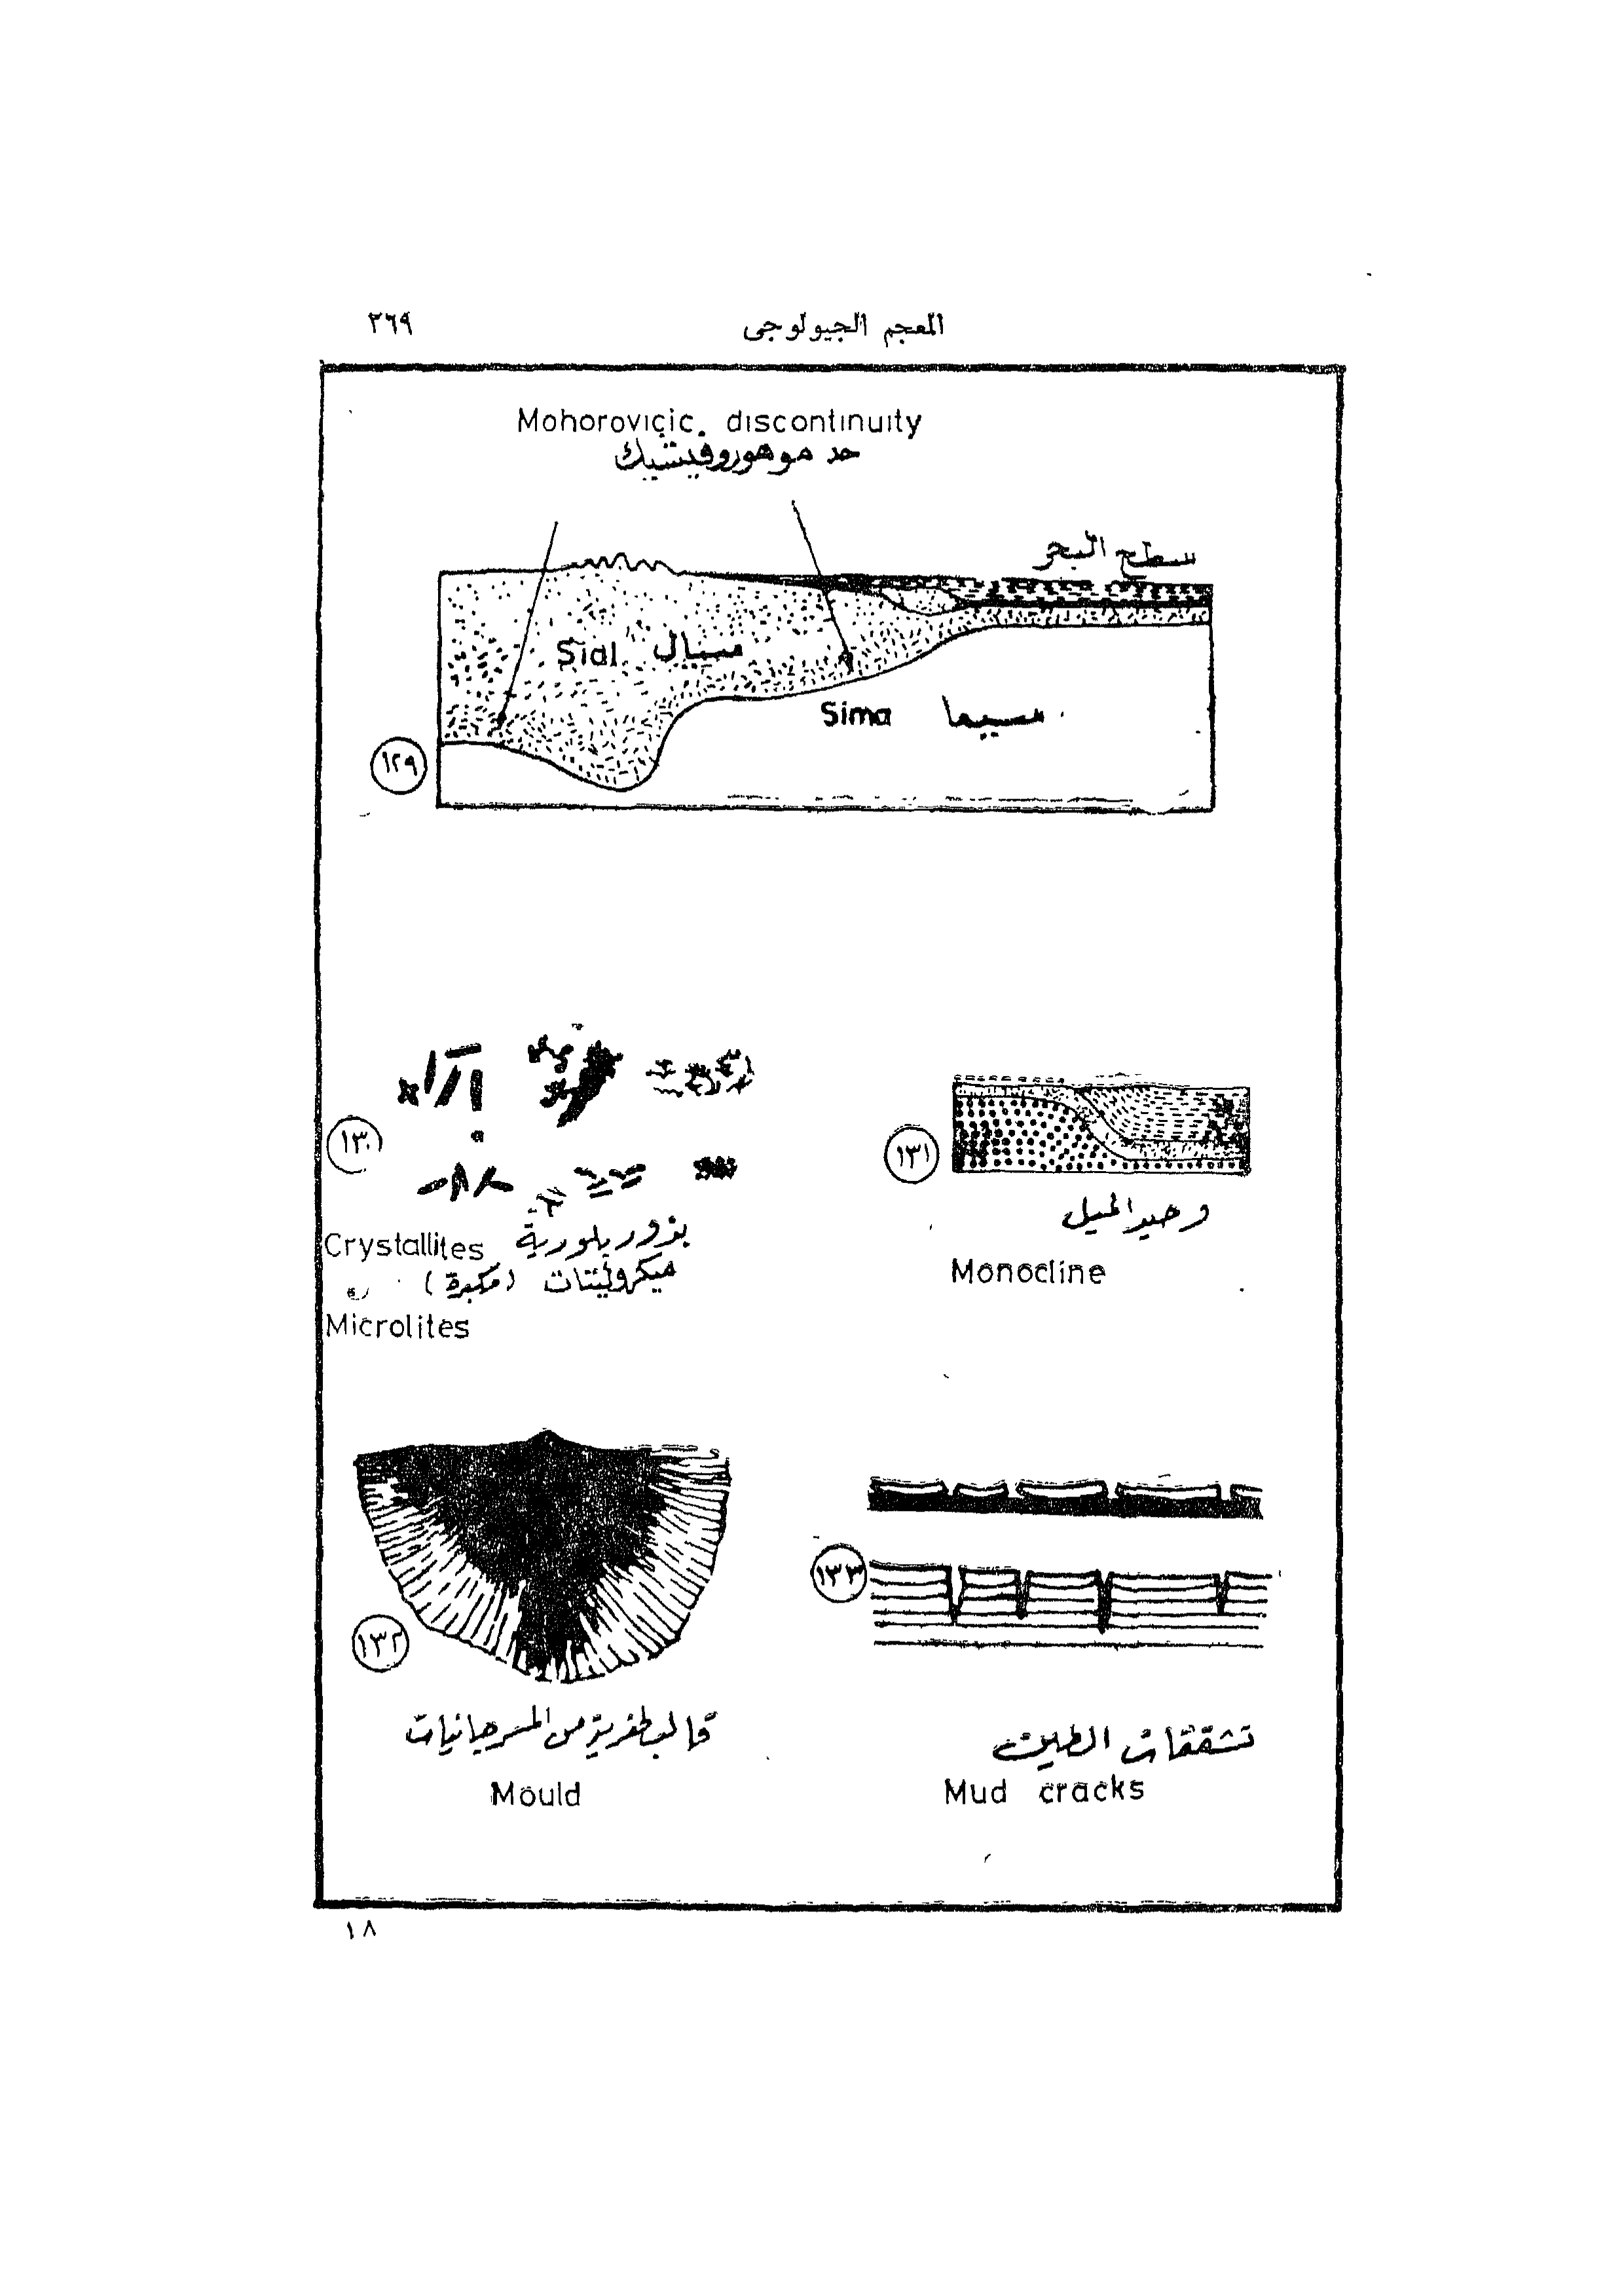 المعجم الجيولوجى
٢٦٩
Mohorovicic discontinuity
حد موهوروفيتشيك
سطح البحر
Sial سيال
Sima سيما
١٢٩
١٣٠
Crystallites بذور بلورية
ميكروليتات (مكبرة)
Microlites
١٣١
وحيد الميل
Monocline
١٣٢
من المسرجانيات
Mould
١٣٣
تشققات الطين
Mud cracks
١٨